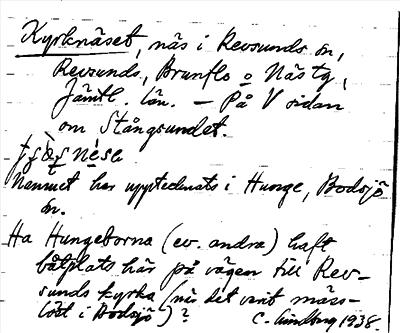 Kyrknäset, näs i Revsunds sn,
Revsunds, Brunflo o Näs tg,
Jämtl. län. — På V sidan
om Stångsundet.
Namnet har upptecknats i Hunge, Bodsjö
sn.
Ha Hungeborna (ev. andra) haft
båtplats här på vägen till Rev-
sunds kyrka (när det varit mäss-
löst i Bodsjö)?
C. Lindberg 1938.